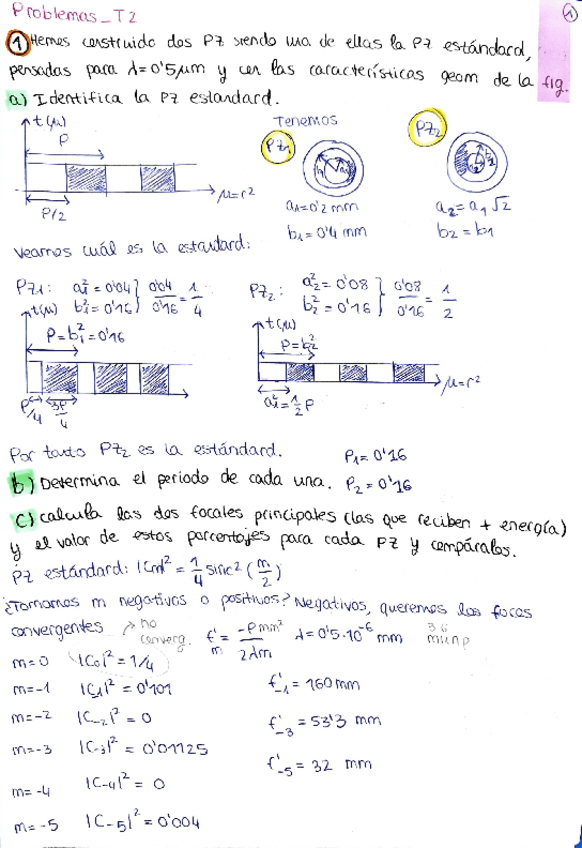 Problemas_T2
1
① Hemos construido dos PZ siendo una de ellas la PZ estándard,
pensadas para λ=0'5μm y con las características geom de la fig.
a) Identifica la PZ estandard.
t(μ)
P
P/2
μ=r²
Tenemos
PZ1
a1=0'2 mm
b1=0'4 mm
PZ2
a2=a1√2
b2=b1
Veamos cuál es la estándard:
PZ1: a1²=0'04 } 0'04/0'16 = 1/4
b1²=0'16
PZ2: a2²=0'08 } 0'08/0'16 = 1/2
b2²=0'16
t(μ)
P=b1²=0'16
P/4 3P/4
t(μ)
P=b2²
μ=r²
a2²=1/2 P
Por tanto PZ2 es la estándard. P1=0'16
b) Determina el periodo de cada una. P2=0'16
c) calcula las dos focales principales (las que reciben + energía)
y el valor de estos porcentajes para cada PZ y compáralos.
PZ estándard: |Cm|²=1/4 sinc²(m/2)
¿Tomamos m negativos o positivos? Negativos, queremos los focos
convergentes → no converg. f'm = -P mm²/2λm λ=0'5·10⁻⁶ mm
m=0 |C0|²=1/4
m=-1 |C-1|²=0'101 f'-1=160 mm
m=-2 |C-2|²=0
m=-3 |C-3|²=0'01125 f'-3=53'3 mm
m=-4 |C-4|²=0
m=-5 |C-5|²=0'004 f'-5=32 mm